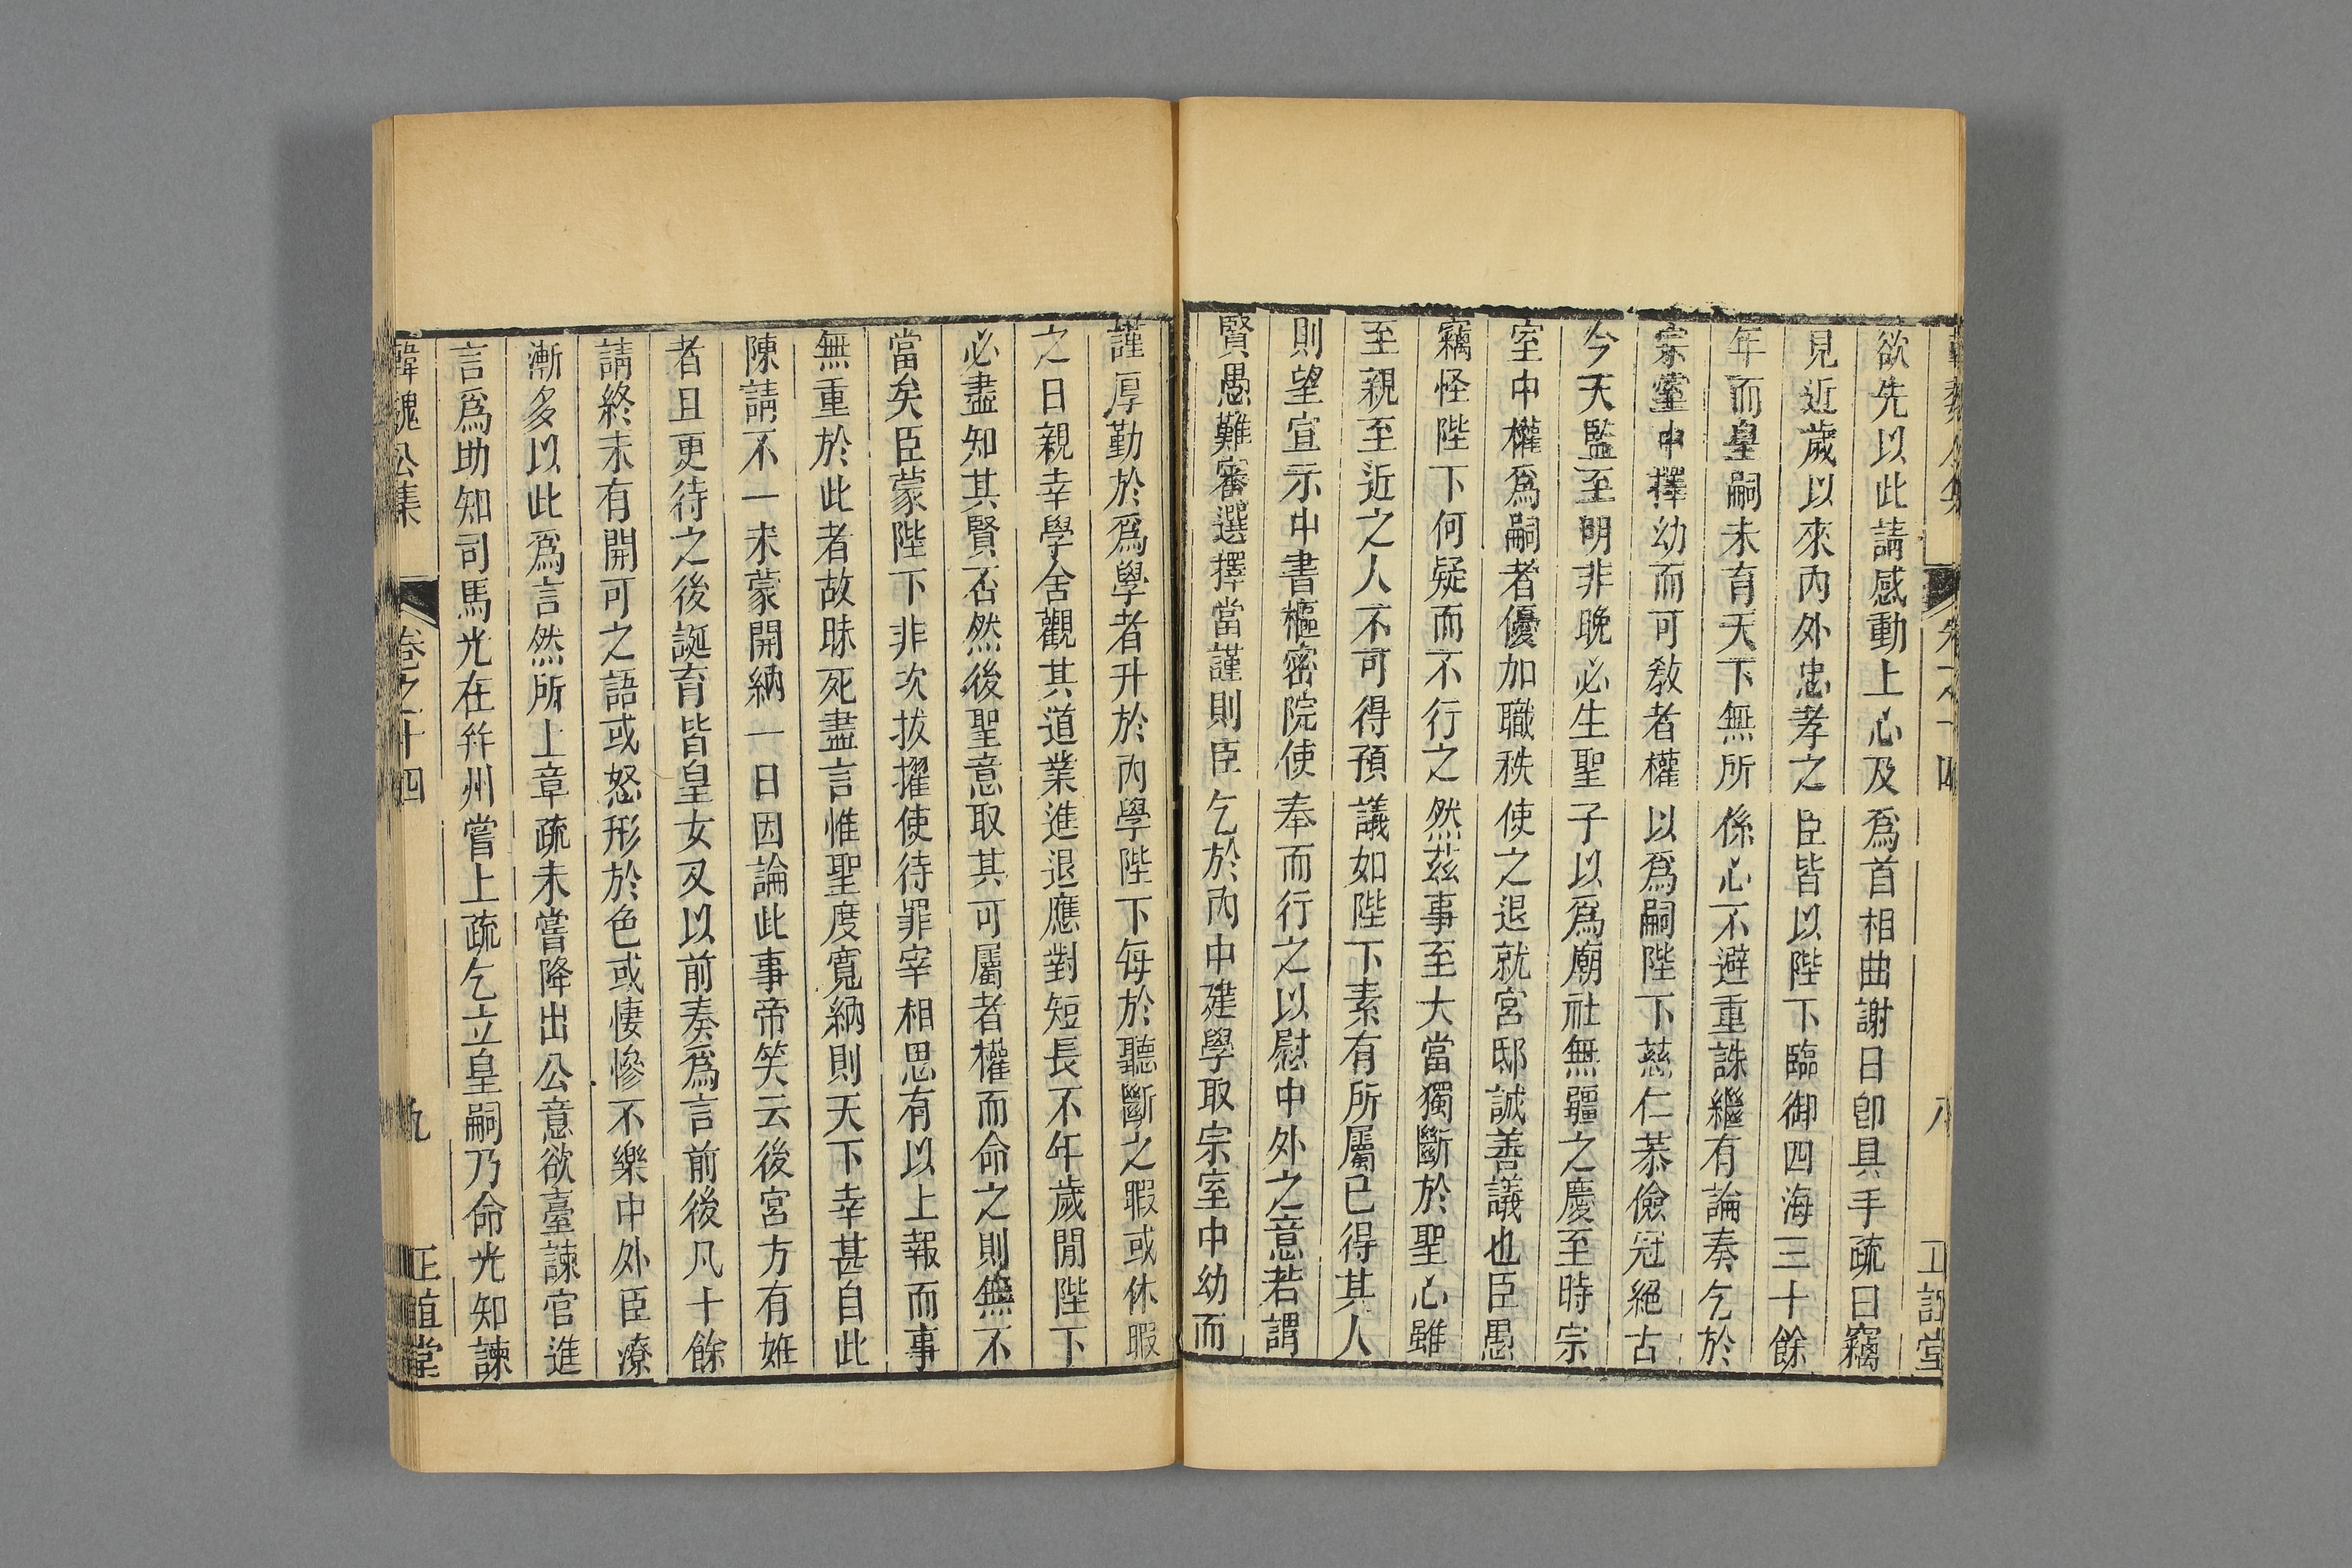 欲先以此請感動上心及爲首相曲謝日卽具手疏曰竊
見近歲以來內外忠孝之臣皆以陛下臨御四海三十餘
年而皇嗣未育天下無所係心不避重誅繼有論奏乞於
宗室中擇幼而可教者權以爲嗣陛下慈仁恭儉冠絕古
今天監至明非晚必生聖子以爲廟社無疆之慶至時宗
室中權爲嗣者優加職秩使之退就宮邸誠善議也臣愚
竊怪陛下何疑而不行之然茲事至大當獨斷於聖心雖
至親至近之人不可得預議如陛下素有所屬已得其人
則望宣示中書樞密院使奉而行之以慰中外之意若謂
賢愚難審選擇當謹則臣乞於內中建學取宗室中幼而
謹厚勤於爲學者升於內學陛下每於聽斷之暇或休暇
之日親幸學舍觀其道業進退應對短長不年歲閒陛下
必盡知其賢否然後聖意取其可屬者權而命之則無不
當矣臣蒙陛下非次拔擢使待罪宰相思有以上報而事
無重於此者故昧死盡言惟聖度寬納則天下幸甚自此
陳請不一未蒙開納一日因論此事帝笑云後宮方有姙
者且更待之後誕育皆皇女又以前奏爲言前後凡十餘
請終未有開可之語或怒形於色或悽慘不樂中外臣寮
漸多以此爲言然所上章疏未嘗降出公意欲臺諫官進
言爲助知司馬光在幷州嘗上疏乞立皇嗣乃命光知諫
韓魏公集 卷之十四 九 正誼堂